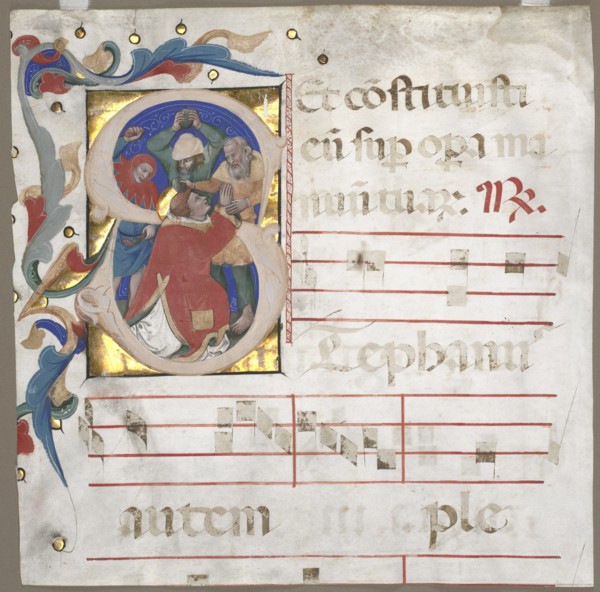 Et cōstituisti
eū sup opa ma
nuū tuaꝝ: ℟.
STephanus
autem ple